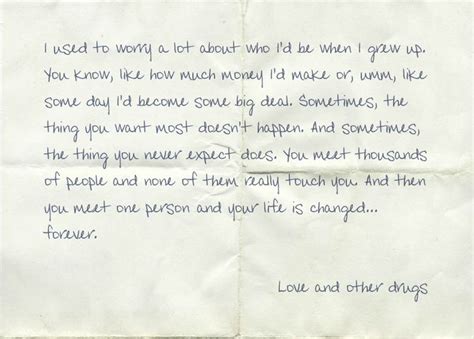 I used to worry a lot about who I'd be when I grew up.
You know, like how much money I'd make or, umm, like
some day I'd become some big deal. Sometimes, the
thing you want most doesn't happen. And sometimes,
the thing you never expect does. You meet thousands
of people and none of them really touch you. And then
you meet one person and your life is changed...
forever.
Love and other drugs